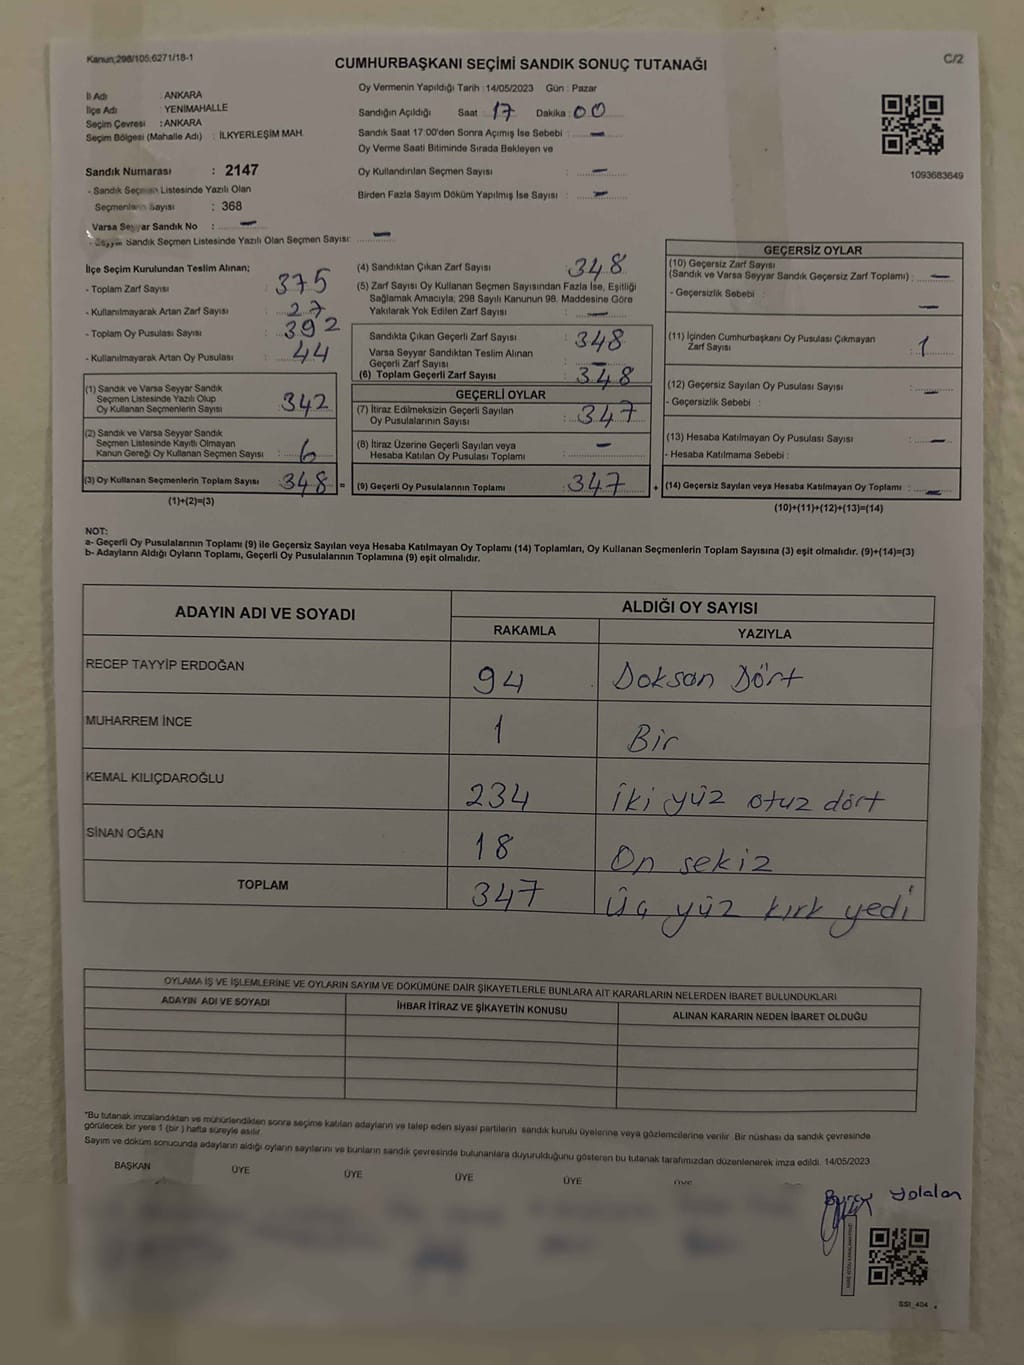 Kanun;298/105;6271/18-1
CUMHURBAŞKANI SEÇİMİ SANDIK SONUÇ TUTANAĞI
C/2
İl Adı : ANKARA
İlçe Adı : YENİMAHALLE
Seçim Çevresi : ANKARA
Seçim Bölgesi (Mahalle Adı) : İLKYERLEŞİM MAH.
Sandık Numarası : 2147
- Sandık Seçmen Listesinde Yazılı Olan
Seçmenlerin Sayısı : 368
Varsa Seyyar Sandık No : —
- Seyyar Sandık Seçmen Listesinde Yazılı Olan Seçmen Sayısı: —
Oy Vermenin Yapıldığı Tarih : 14/05/2023 Gün : Pazar
Sandığın Açıldığı Saat 17 Dakika : 00
Sandık Saat 17:00'den Sonra Açımış İse Sebebi : —
Oy Verme Saati Bitiminde Sırada Bekleyen ve
Oy Kullandırılan Seçmen Sayısı : —
Birden Fazla Sayım Döküm Yapılmış İse Sayısı : —
1093683649
İlçe Seçim Kurulundan Teslim Alınan;
- Toplam Zarf Sayısı : 375
- Kullanılmayarak Artan Zarf Sayısı : 27
- Toplam Oy Pusulası Sayısı : 392
- Kullanılmayarak Artan Oy Pusulası : 44
(1) Sandık ve Varsa Seyyar Sandık
Seçmen Listesinde Yazılı Olup
Oy Kullanan Seçmenlerin Sayısı : 342
(2) Sandık ve Varsa Seyyar Sandık
Seçmen Listesinde Kayıtlı Olmayan
Kanun Gereği Oy Kullanan Seçmen Sayısı : 6
(3) Oy Kullanan Seçmenlerin Toplam Sayısı : 348 =
(1)+(2)=(3)
(4) Sandıktan Çıkan Zarf Sayısı : 348
(5) Zarf Sayısı Oy Kullanan Seçmen Sayısından Fazla İse, Eşitliği
Sağlamak Amacıyla; 298 Sayılı Kanunun 98. Maddesine Göre
Yakılarak Yok Edilen Zarf Sayısı : —
Sandıkta Çıkan Geçerli Zarf Sayısı : 348
Varsa Seyyar Sandıktan Teslim Alınan
Geçerli Zarf Sayısı : —
(6) Toplam Geçerli Zarf Sayısı : 348
GEÇERLİ OYLAR
(7) İtiraz Edilmeksizin Geçerli Sayılan
Oy Pusulalarının Sayısı : 347
(8) İtiraz Üzerine Geçerli Sayılan veya
Hesaba Katılan Oy Pusulası Toplamı : —
(9) Geçerli Oy Pusulalarının Toplamı : 347 +
GEÇERSİZ OYLAR
(10) Geçersiz Zarf Sayısı
(Sandık ve Varsa Seyyar Sandık Geçersiz Zarf Toplamı) : —
- Geçersizlik Sebebi : —
(11) İçinden Cumhurbaşkanı Oy Pusulası Çıkmayan
Zarf Sayısı : 1
(12) Geçersiz Sayılan Oy Pusulası Sayısı : —
- Geçersizlik Sebebi :
(13) Hesaba Katılmayan Oy Pusulası Sayısı : —
- Hesaba Katılmama Sebebi :
(14) Geçersiz Sayılan veya Hesaba Katılmayan Oy Toplamı : —
(10)+(11)+(12)+(13)=(14)
NOT:
a- Geçerli Oy Pusulalarının Toplamı (9) ile Geçersiz Sayılan veya Hesaba Katılmayan Oy Toplamı (14) Toplamları, Oy Kullanan Seçmenlerin Toplam Sayısına (3) eşit olmalıdır. (9)+(14)=(3)
b- Adayların Aldığı Oyların Toplamı, Geçerli Oy Pusulalarının Toplamına (9) eşit olmalıdır.
ADAYIN ADI VE SOYADI
ALDIĞI OY SAYISI
RAKAMLA YAZIYLA
RECEP TAYYİP ERDOĞAN 94 Doksan Dört
MUHARREM İNCE 1 Bir
KEMAL KILIÇDAROĞLU 234 iki yüz otuz dört
SİNAN OĞAN 18 On sekiz
TOPLAM 347 Üç yüz kırk yedi
OYLAMA İŞ VE İŞLEMLERİNE VE OYLARIN SAYIM VE DÖKÜMÜNE DAİR ŞİKAYETLERLE BUNLARA AİT KARARLARIN NELERDEN İBARET BULUNDUKLARI
ADAYIN ADI VE SOYADI İHBAR İTİRAZ VE ŞİKAYETİN KONUSU ALINAN KARARIN NEDEN İBARET OLDUĞU
*Bu tutanak imzalandıktan ve mühürlendikten sonra seçime katılan adayların ve talep eden siyasi partilerin sandık kurulu üyelerine veya gözlemcilerine verilir. Bir nüshası da sandık çevresinde
görülecek bir yere 1 (bir ) hafta süreyle asılır.
Sayım ve döküm sonucunda adayların aldığı oyların sayılarını ve bunların sandık çevresinde bulunanlara duyurulduğunu gösteren bu tutanak tarafımızdan düzenlenerek imza edildi. 14/05/2023
BAŞKAN ÜYE ÜYE ÜYE ÜYE ÜYE
Yolalan
SSI_404